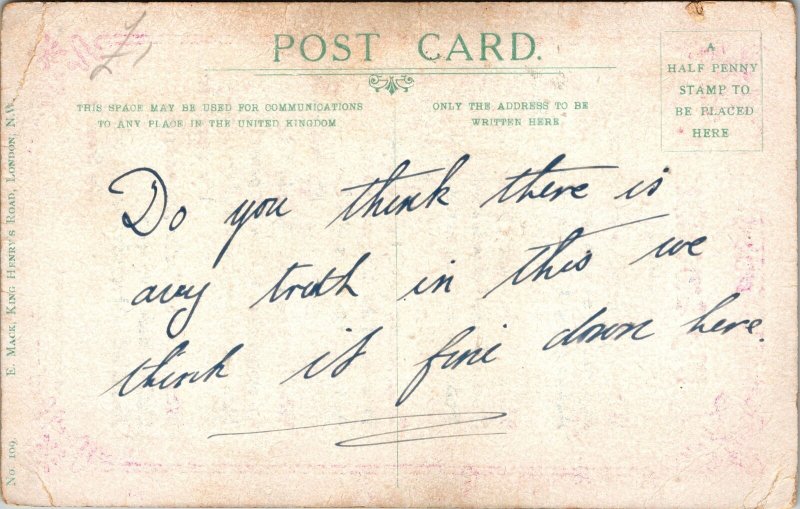 POST CARD.
THIS SPACE MAY BE USED FOR COMMUNICATIONS
TO ANY PLACE IN THE UNITED KINGDOM
ONLY THE ADDRESS TO BE
WRITTEN HERE
A
HALF PENNY
STAMP TO
BE PLACED
HERE
Do you think there is
any truth in this we
think it fine down here.
No. 109. E. MACK, KING HENRY'S ROAD, LONDON, N.W.